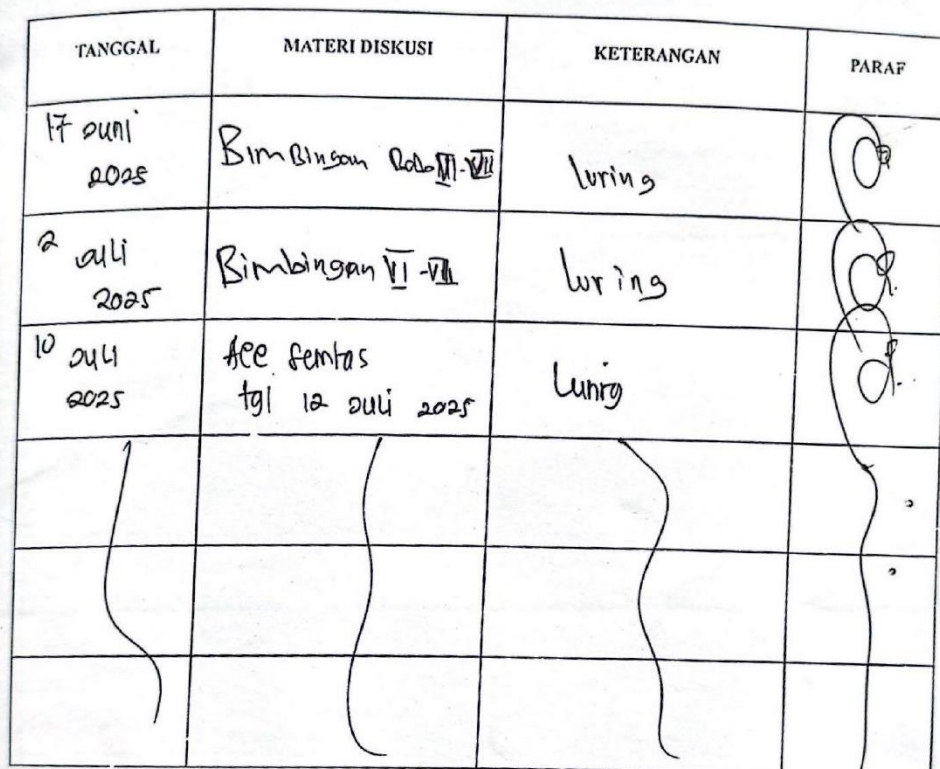 TANGGAL
MATERI DISKUSI
KETERANGAN
PARAF
17 Juni
2025
BimBingan VI-VII
luring
2
Juli
2025
Bimbingan VI-VII
luring
10
Juli
2025
Acc Semtas
tgl 12 Juli 2025
Lunig